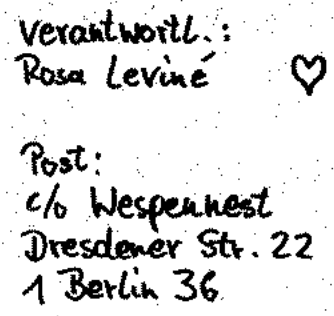 Verantwortl.:
Rosa Leviné
Post:
c/o Wespennest
Dresdener Str. 22
1 Berlin 36